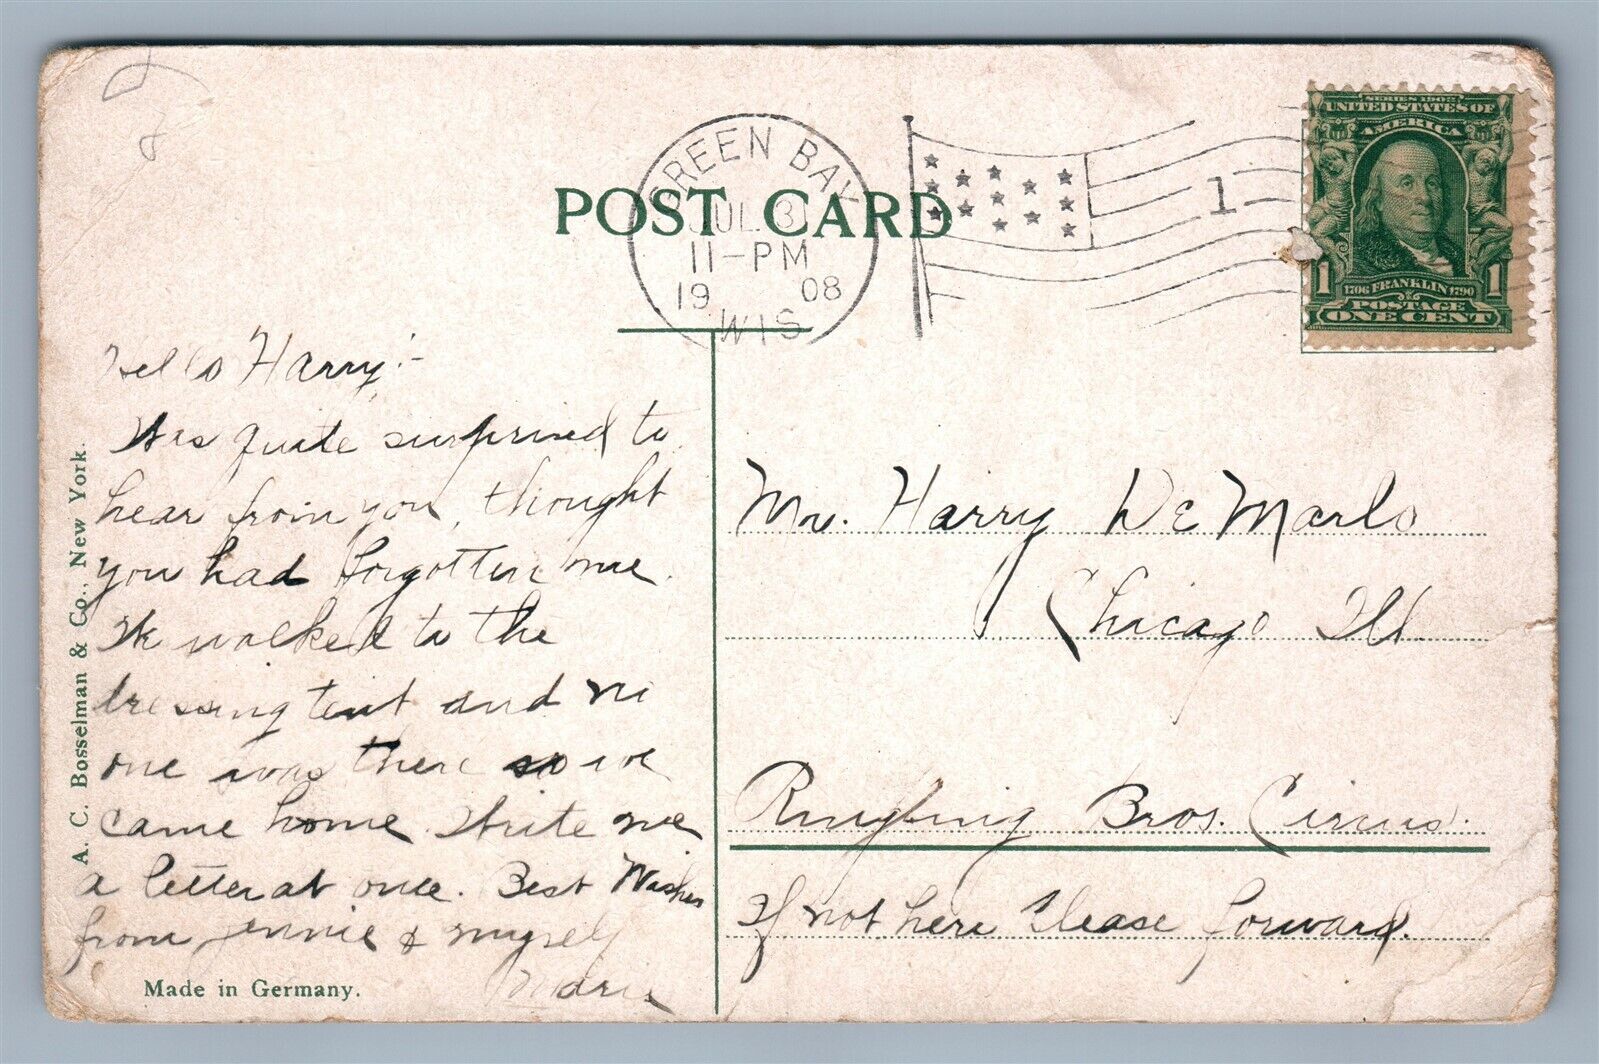 POST CARD
GREEN BAY
JUL 31
11-PM
19 08
WIS
1
SERIES 1902
UNITED STATES OF
AMERICA
1706 FRANKLIN 1790
1 1
POSTAGE
ONE CENT
Hello Harry:-
Was quite surprised to
hear from you, thought
you had forgotten me.
We walked to the
dressing tent and no
one was there so we
came home. Write me
a letter at once. Best Wishes
from Jennie & myself
Marie
Mr. Harry De Marlo
Chicago Ill.
Ringling Bros. Circus.
If not here Please forward.
A. C. Bosselman & Co., New York.
Made in Germany.